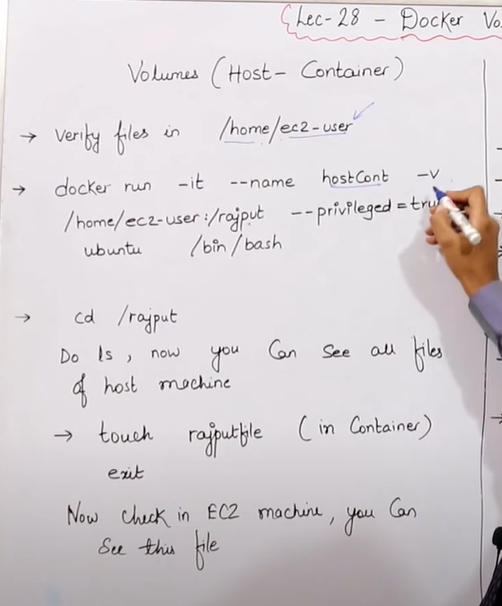 Lec-28 - Docker Vo
Volumes (Host- Container)
→ Verify files in /home/ec2-user
→ docker run -it --name hostCont -v
/home/ec2-user:/rajput --privileged=tru
ubuntu /bin/bash
→ cd /rajput
Do ls, now you Can See all files
of host machine
→ touch rajputfile (in Container)
exit
Now check in EC2 machine, you Can
See this file